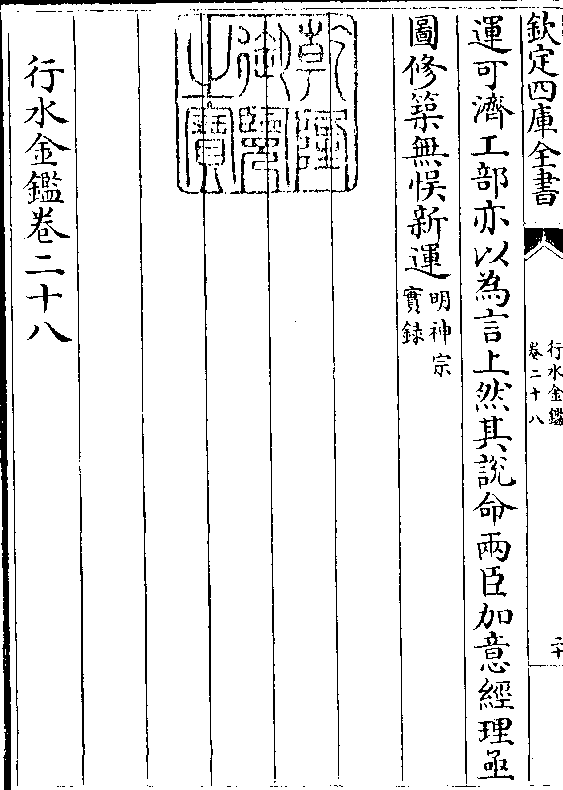 欽定四庫全書
行水金鑑
卷二十八
二十
運可濟工部亦以為言上然其說命兩臣加意經理亟
圖修築無悞新運明神宗
實録
乾隆御覽之寶
行水金鑑卷二十八